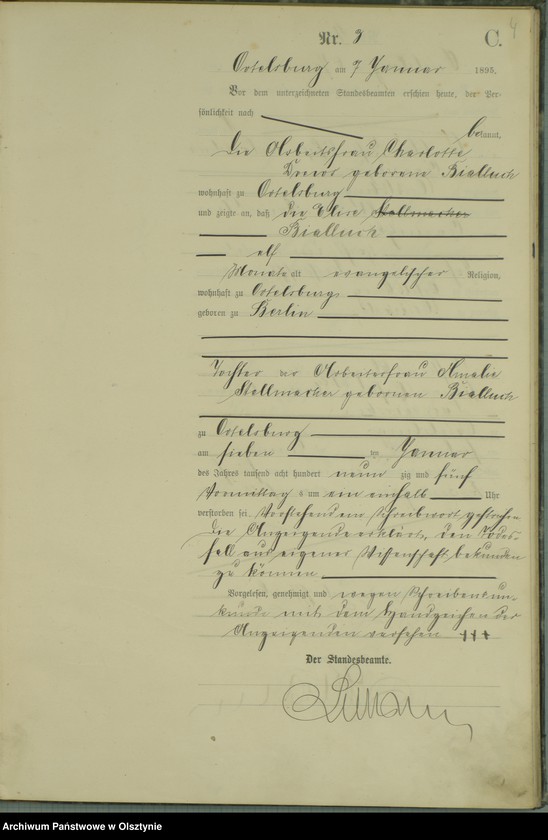 4
Nr. 3 C.
Ortelsburg am 7 Januar 1895.
Vor dem unterzeichneten Standesbeamten erschien heute, der Per-
sönlichkeit nach
bekannt,
die Arbeiterfrau Charlotte
Drews geborene Bialluch
wohnhaft zu Ortelsburg
und zeigte an, daß die Elise Stellmacher
Bialluch
elf
Monate alt evangelischer Religion,
wohnhaft zu Ortelsburg
geboren zu Berlin
Tochter der Arbeiterfrau Amalie
Stellmacher geborenen Bialluch
zu Ortelsburg
am sieben ten Januar
des Jahres tausend acht hundert neun zig und fünf
Vormittag s um ein einhalb Uhr
verstorben sei. Vorstehendem Schreibwort gestrichen
Die Anzeigende erklärt, den Todes-
fall aus eigener Wissenschaft bekunden
zu können
Vorgelesen, genehmigt und wegen Schreibensun-
kunde mit dem Handzeichen der
Anzeigenden versehen +++
Der Standesbeamte.
Archiwum Państwowe w Olsztynie